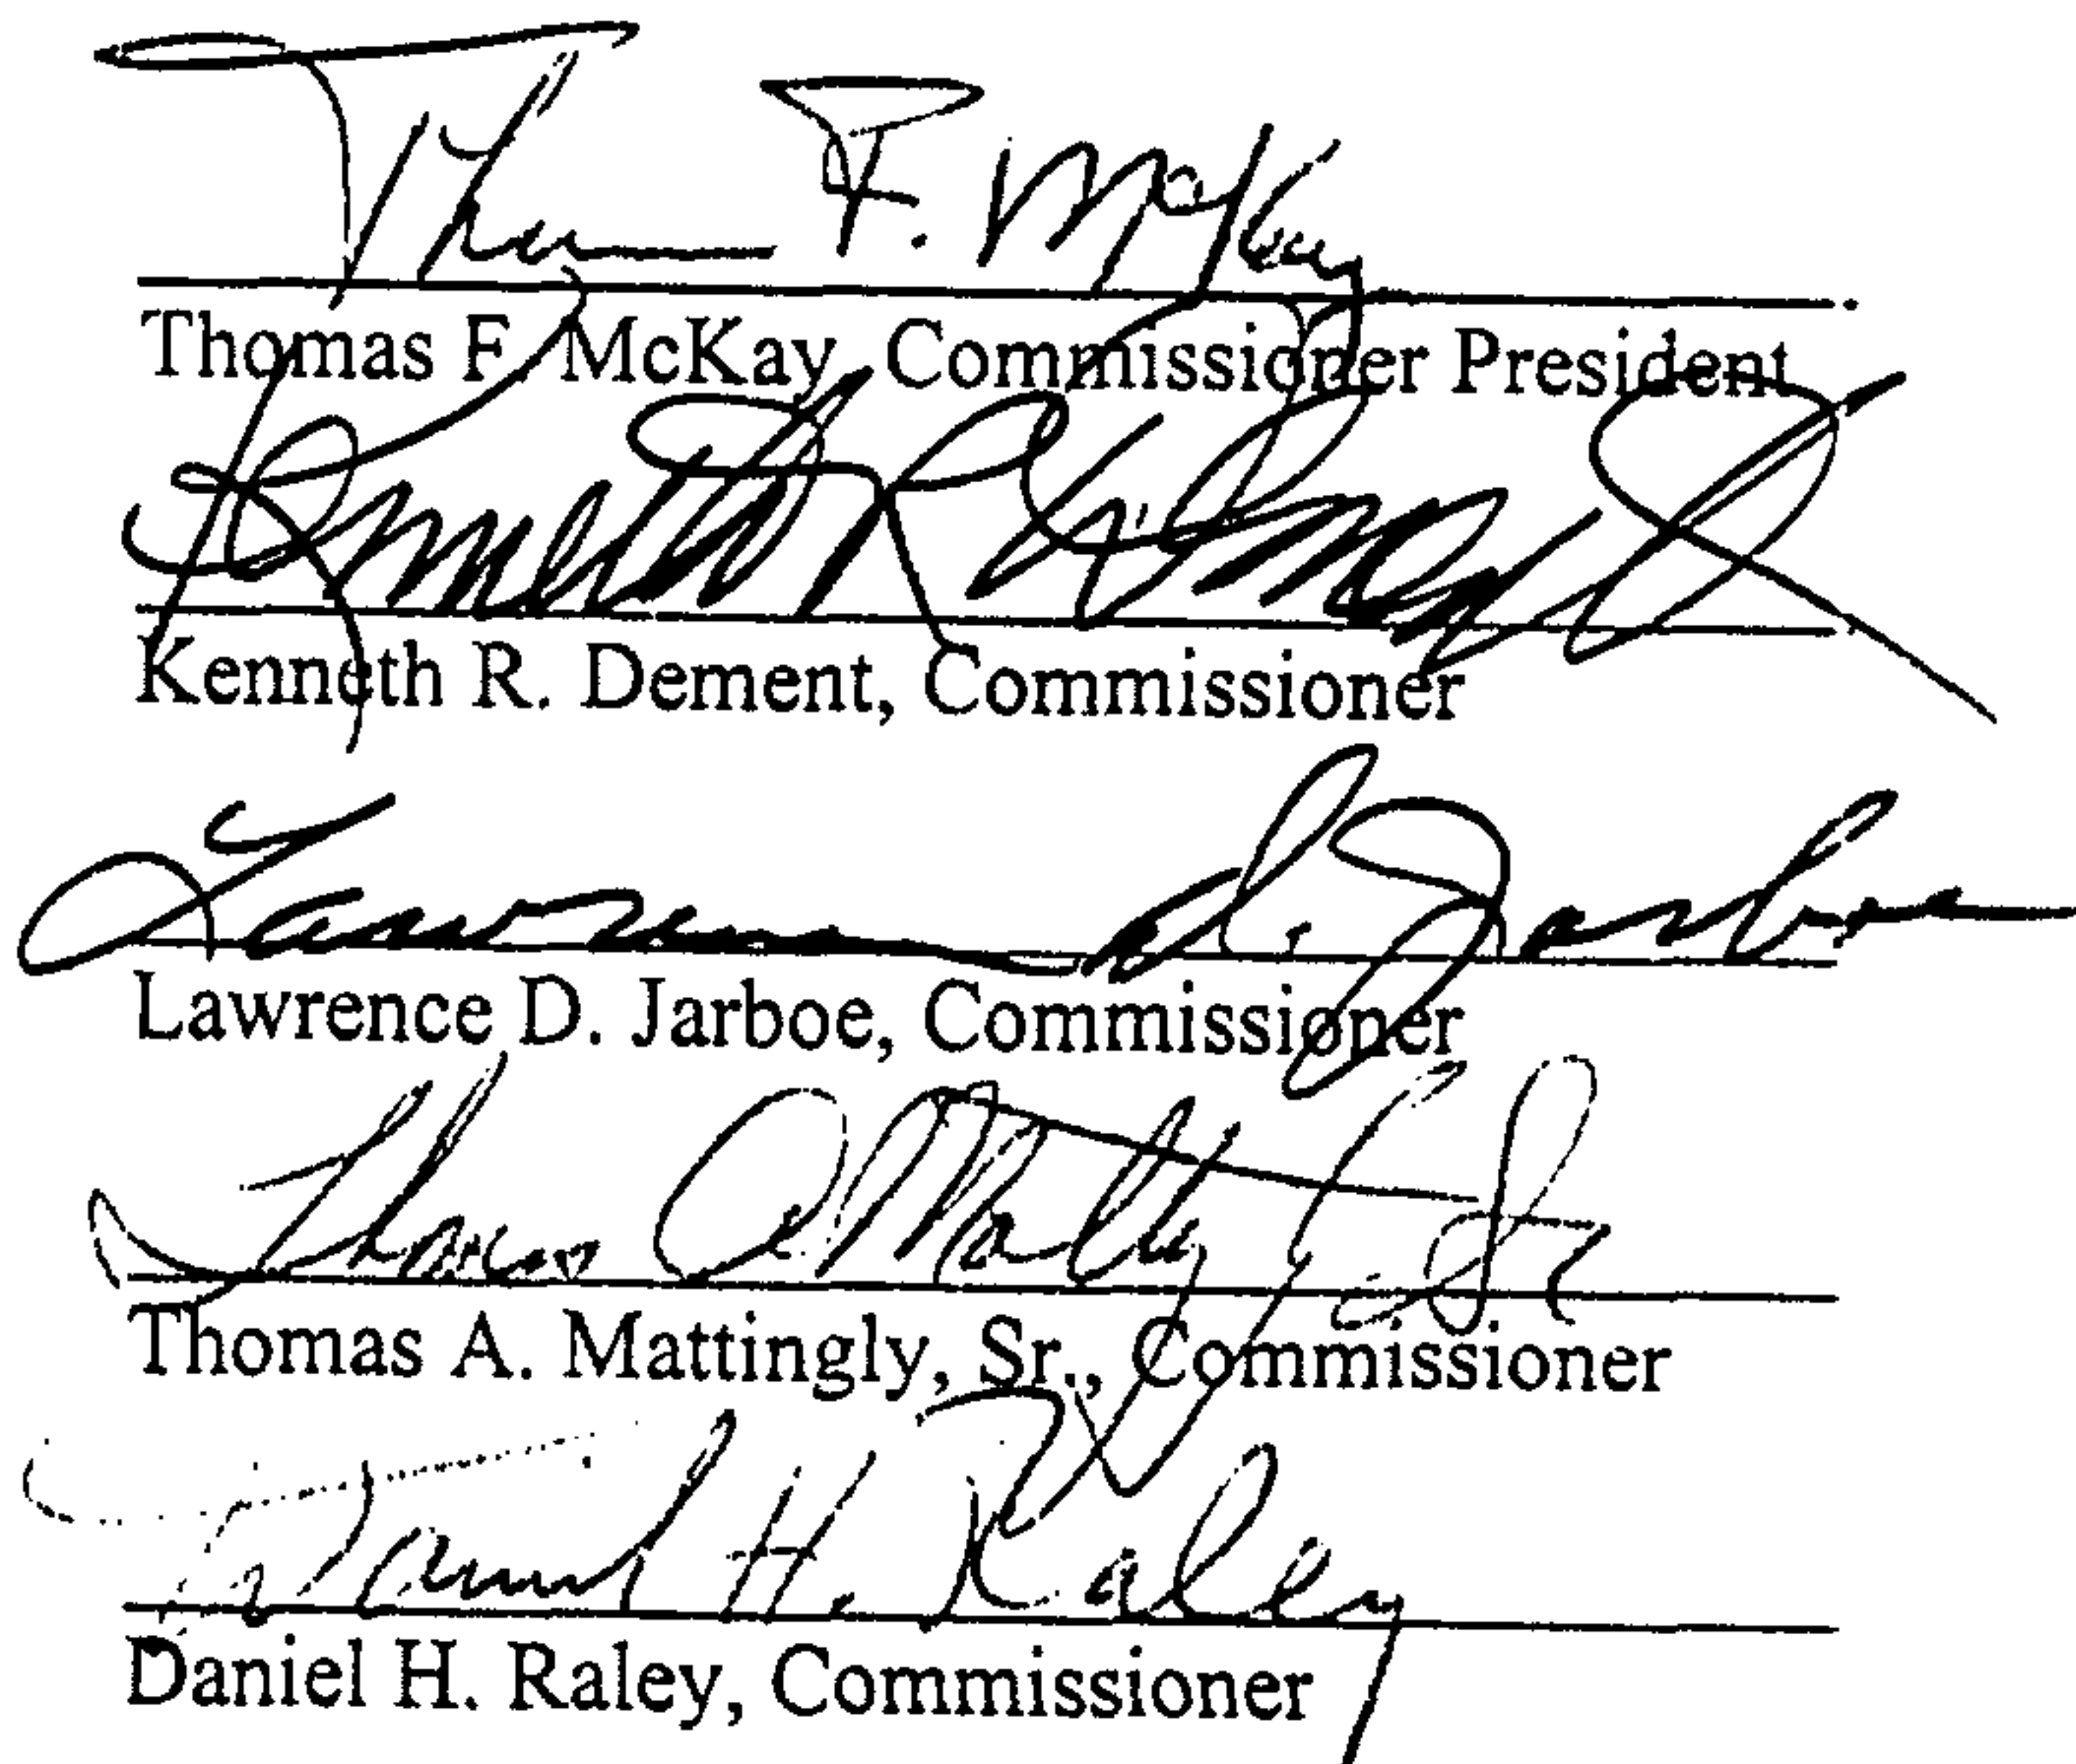 Thomas F. McKay
Thomas F. McKay, Commissioner President
Kenneth R. Dement
Kenneth R. Dement, Commissioner
Lawrence D. Jarboe
Lawrence D. Jarboe, Commissioner
Thomas A. Mattingly Sr
Thomas A. Mattingly, Sr., Commissioner
Daniel H. Raley
Daniel H. Raley, Commissioner